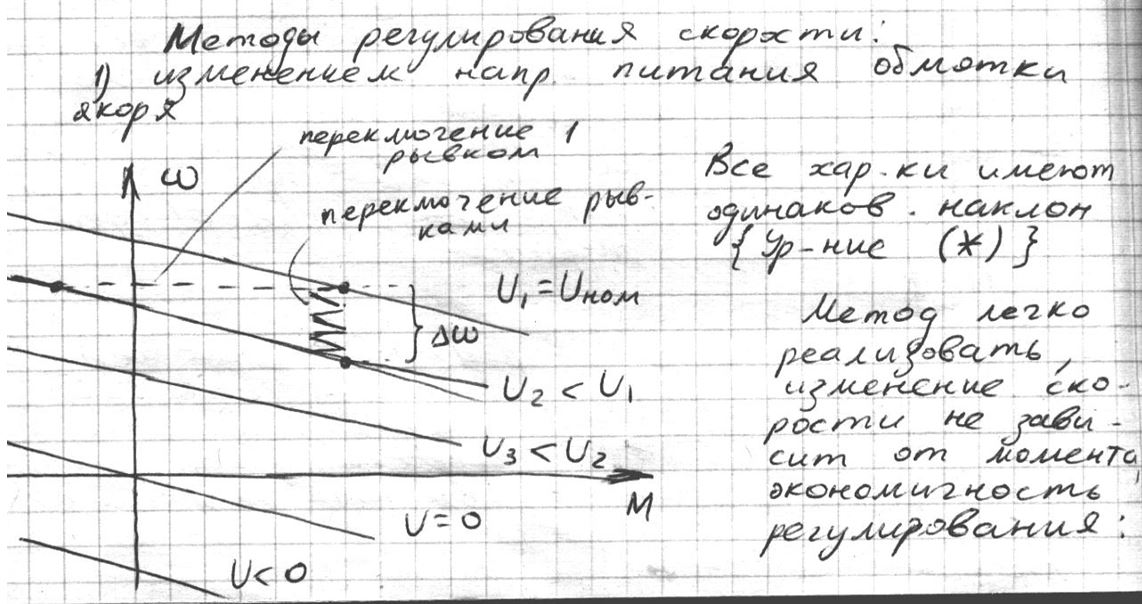 Методы регулирования скорости:
1) изменением напр. питания обмотки
якоря
переключение 1
рывком
ω
переключение рыв-
ками
Все хар-ки имеют
одинаков. наклон
{ Ур-ние (*) }
U₁ = Uном
Δω
U₂ < U₁
U₃ < U₂
M
U = 0
U < 0
Метод легко
реализовать,
изменение ско-
рости не зави-
сит от момента,
экономичность
регулирования: